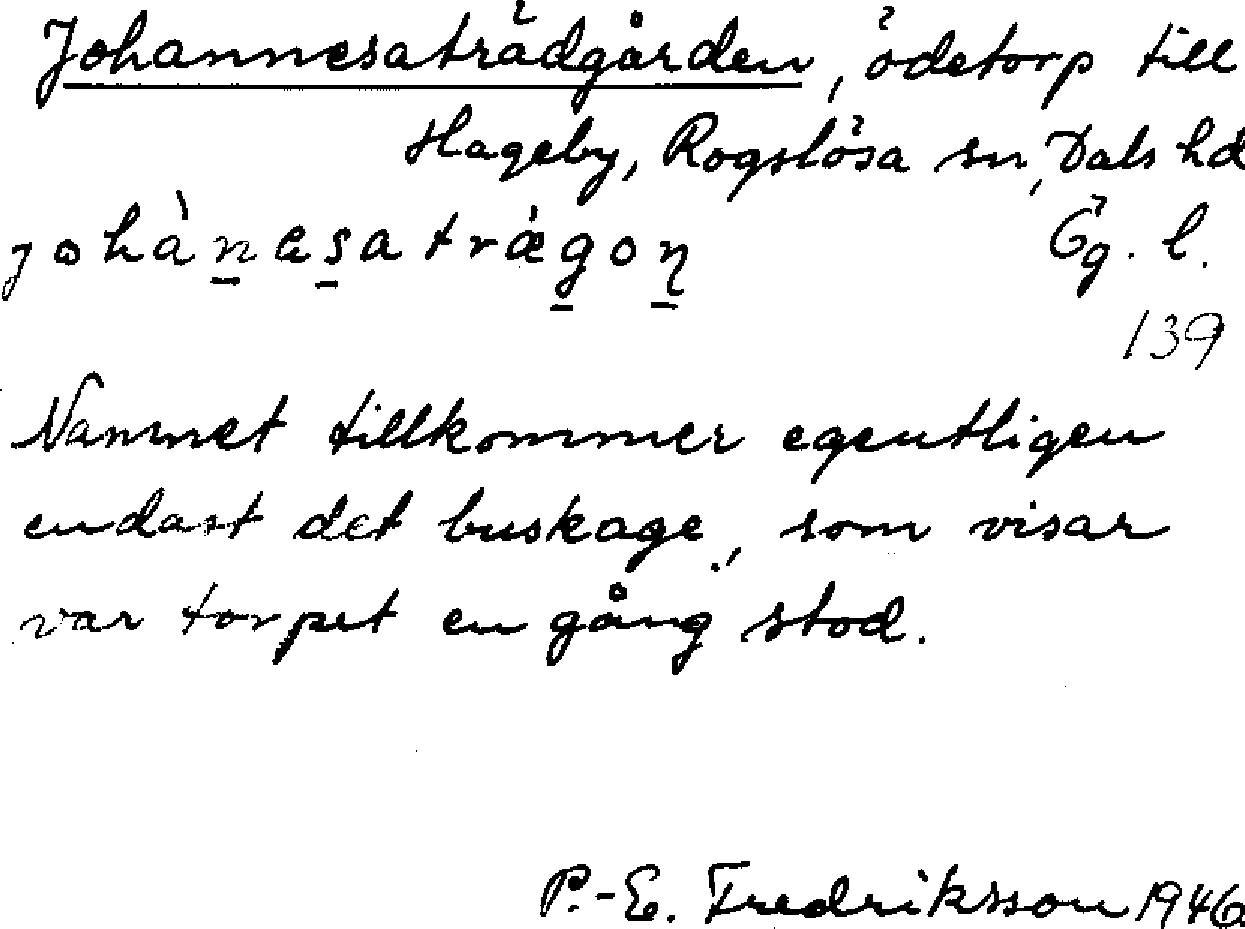 Johannesaträdgården, ödetorp till
Hageby, Rogslösa sn, Dals hd
johànesatrǽgon Ög. l.
139
Namnet tillkommer egentligen
endast det buskage, som visar
var torpet en gång stod.
P.-E. Fredriksson 1946